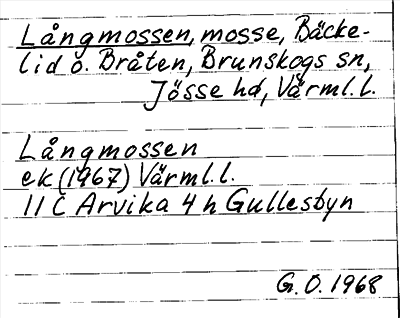 Långmossen, mosse, Bäcke-
lid o. Bråten, Brunskogs sn,
Jösse hd, Värml. l.
Långmossen
ek (1967) Värml. l.
11 C Arvika 4 h Gullesbyn
G. O. 1968